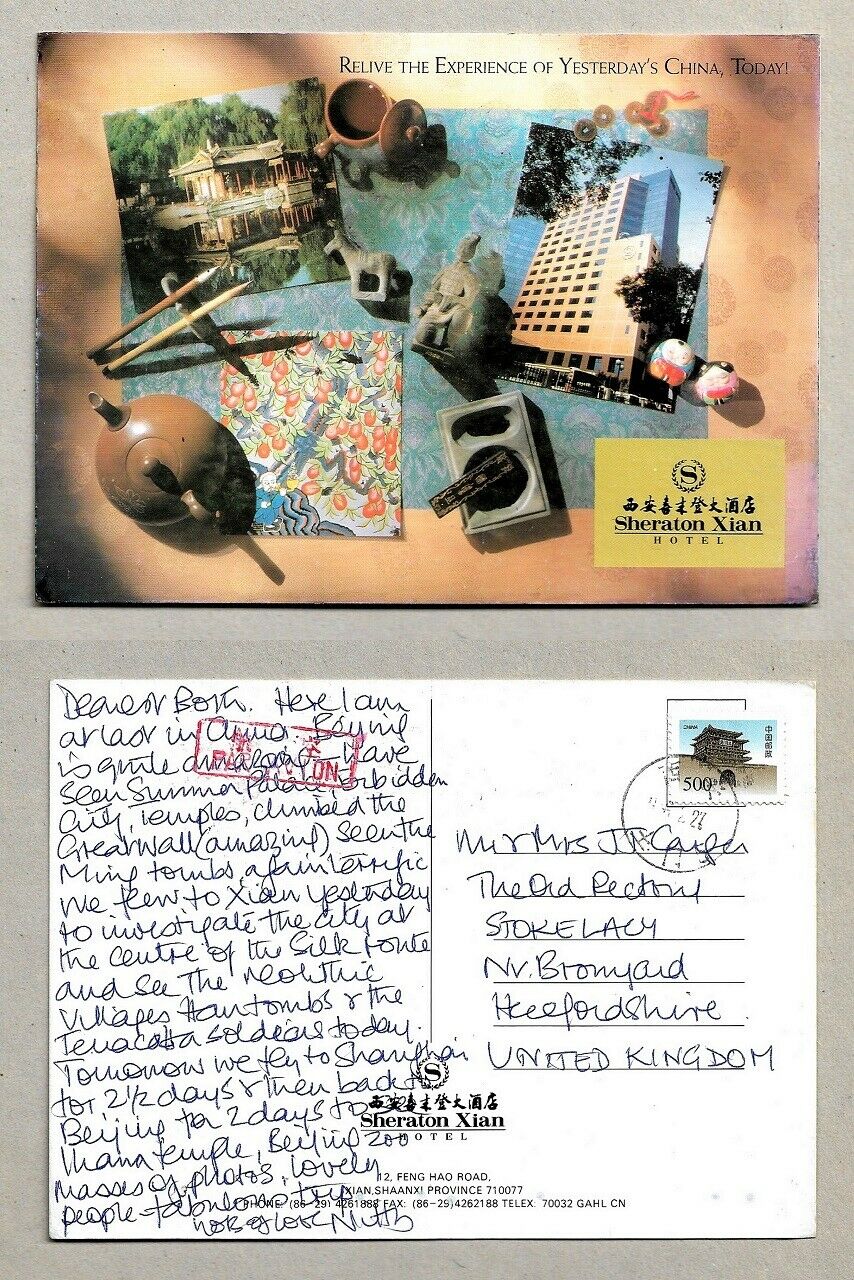 RELIVE THE EXPERIENCE OF YESTERDAY'S CHINA, TODAY!
S
西安喜来登大酒店
Sheraton Xian
HOTEL
Dearest Both. Here I am
at last in China. Beijing
is quite amazing - have
seen Summer Palace, Forbidden
City, Temples, climbed the
Great Wall (amazing) seen the
Ming tombs again terrific
we flew to Xian yesterday
to investigate the city at
the centre of the Silk route
and see the neolithic
villages Han tombs & the
Terracotta soldiers today.
Tomorrow we fly to Shanghai
for 2½ days & then back to
Beijing for 2 days to
Lhama temple, Beijing zoo
Masses of photos, lovely
people fabulous trip
lots of love
CHINA
中国邮政
500
Mr & Mrs J
The Old Rectory
STOKE LACY
Nr. Bromyard
Herefordshire
UNITED KINGDOM
S
西安喜来登大酒店
Sheraton Xian
HOTEL
12, FENG HAO ROAD,
XIAN, SHAANXI PROVINCE 710077
PHONE: (86-29) 4261888 FAX: (86-29) 4262188 TELEX: 70032 GAHL CN